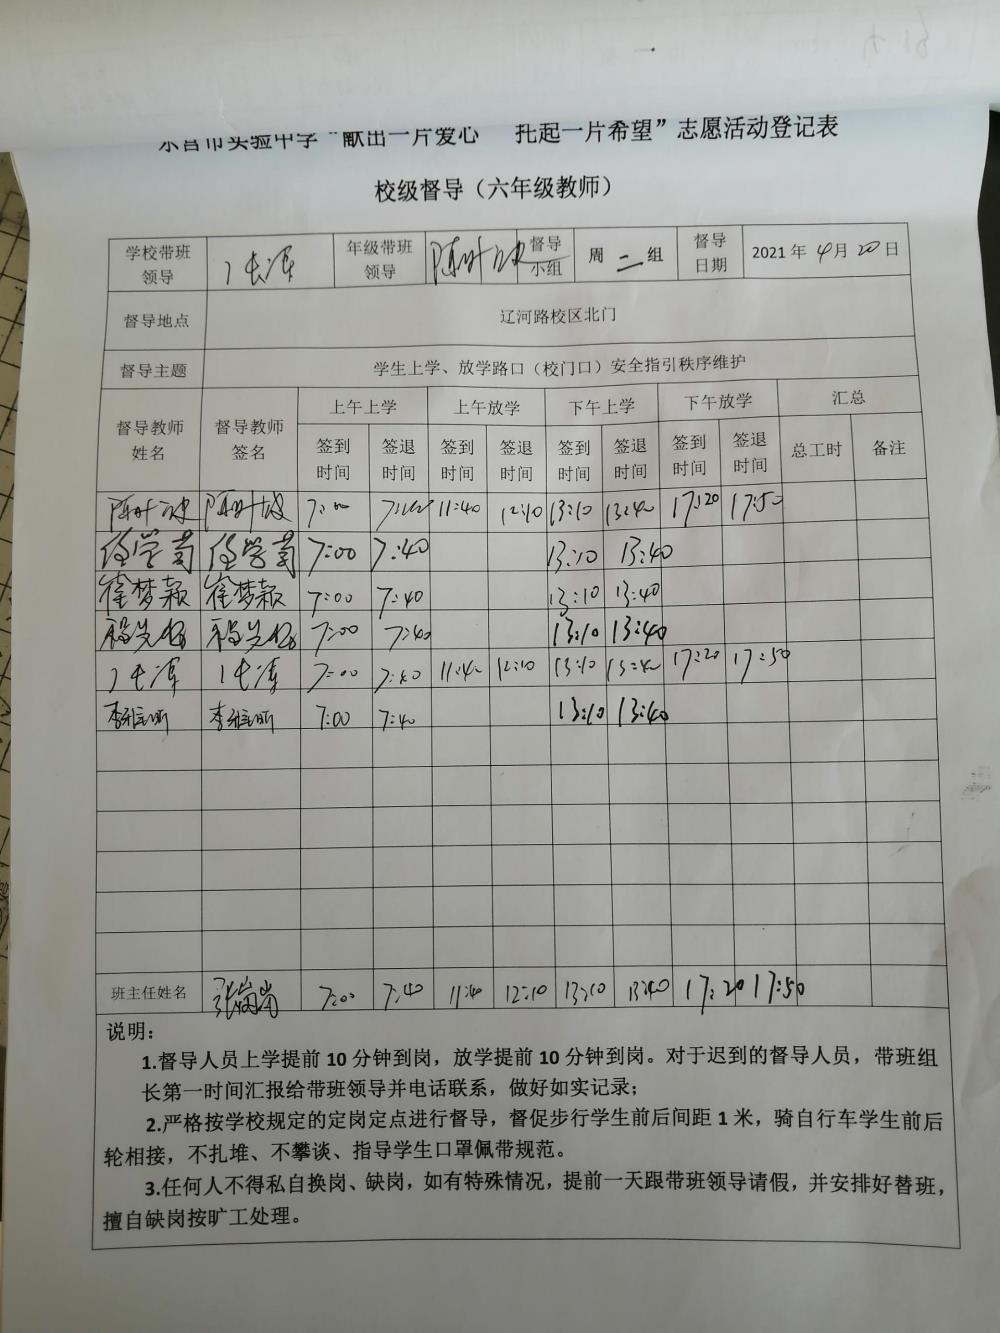 东营市实验中学“献出一片爱心 托起一片希望”志愿活动登记表
校级督导（六年级教师）
学校带班领导 年级带班领导 督导小组 周二组 督导日期 2021年4月20日
督导地点 辽河路校区北门
督导主题 学生上学、放学路口（校门口）安全指引秩序维护
督导教师姓名 督导教师签名 上午上学 上午放学 下午上学 下午放学 汇总
签到时间 签退时间 签到时间 签退时间 签到时间 签退时间 签到时间 签退时间 总工时 备注
7:00 11:40 12:10 13:10 13:40 17:20 17:50
7:00 7:40 13:10 13:40
崔梦颖 崔梦颖 7:00 7:40 13:10 13:40
7:00 7:40 13:10 13:40
7:00 7:40 11:40 12:10 13:10 13:40 17:20 17:50
7:00 7:40 13:10 13:40
班主任姓名 7:00 7:40 11:40 12:10 13:10 13:40 17:20 17:50
说明：
1.督导人员上学提前10分钟到岗，放学提前10分钟到岗。对于迟到的督导人员，带班组
长第一时间汇报给带班领导并电话联系，做好如实记录；
2.严格按学校规定的定岗定点进行督导，督促步行学生前后间距1米，骑自行车学生前后
轮相接，不扎堆、不攀谈、指导学生口罩佩带规范。
3.任何人不得私自换岗、缺岗，如有特殊情况，提前一天跟带班领导请假，并安排好替班，
擅自缺岗按旷工处理。